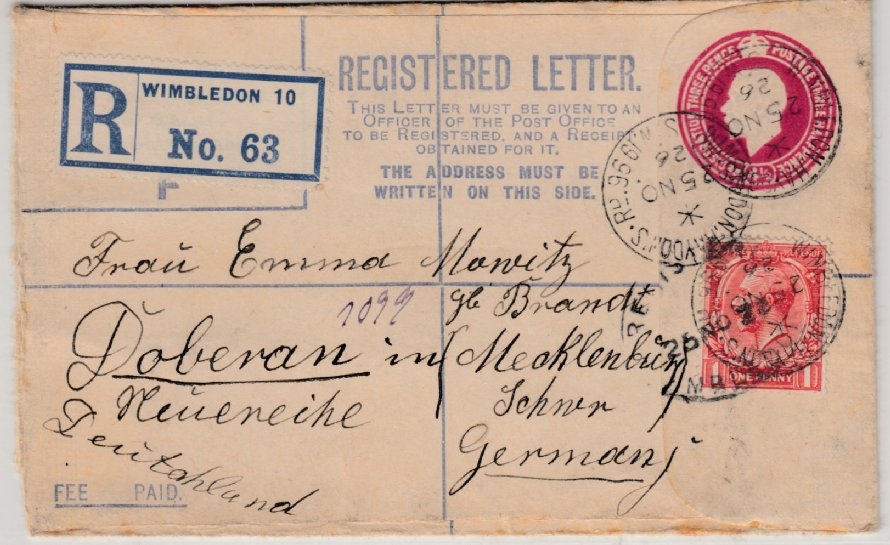 R
WIMBLEDON 10
No. 63
REGISTERED LETTER.
THIS LETTER MUST BE GIVEN TO AN
OFFICER OF THE POST OFFICE
TO BE REGISTERED, AND A RECEIPT
OBTAINED FOR IT.
THE ADDRESS MUST BE
WRITTEN ON THIS SIDE.
THREE PENCE
POSTAGE
25 NO
26
25 NO
26
25 NO
Frau Emma Mowitz
1099
gb Brandt
Doberan in Mecklenburg
Neuereihe
Schwr
Deutchland
Germany
ONE PENNY
FEE PAID.